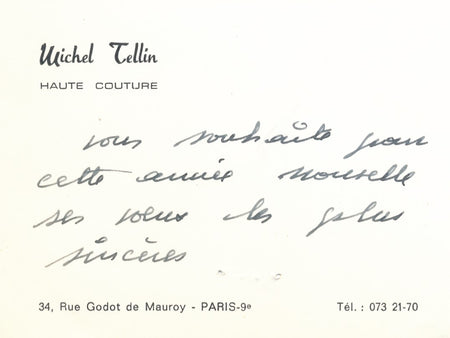 Michel Tellin
HAUTE COUTURE
vous souhaite pour
cette année nouvelle
ses voeux les plus
sincères
34, Rue Godot de Mauroy - PARIS-9e Tél. : 073 21-70